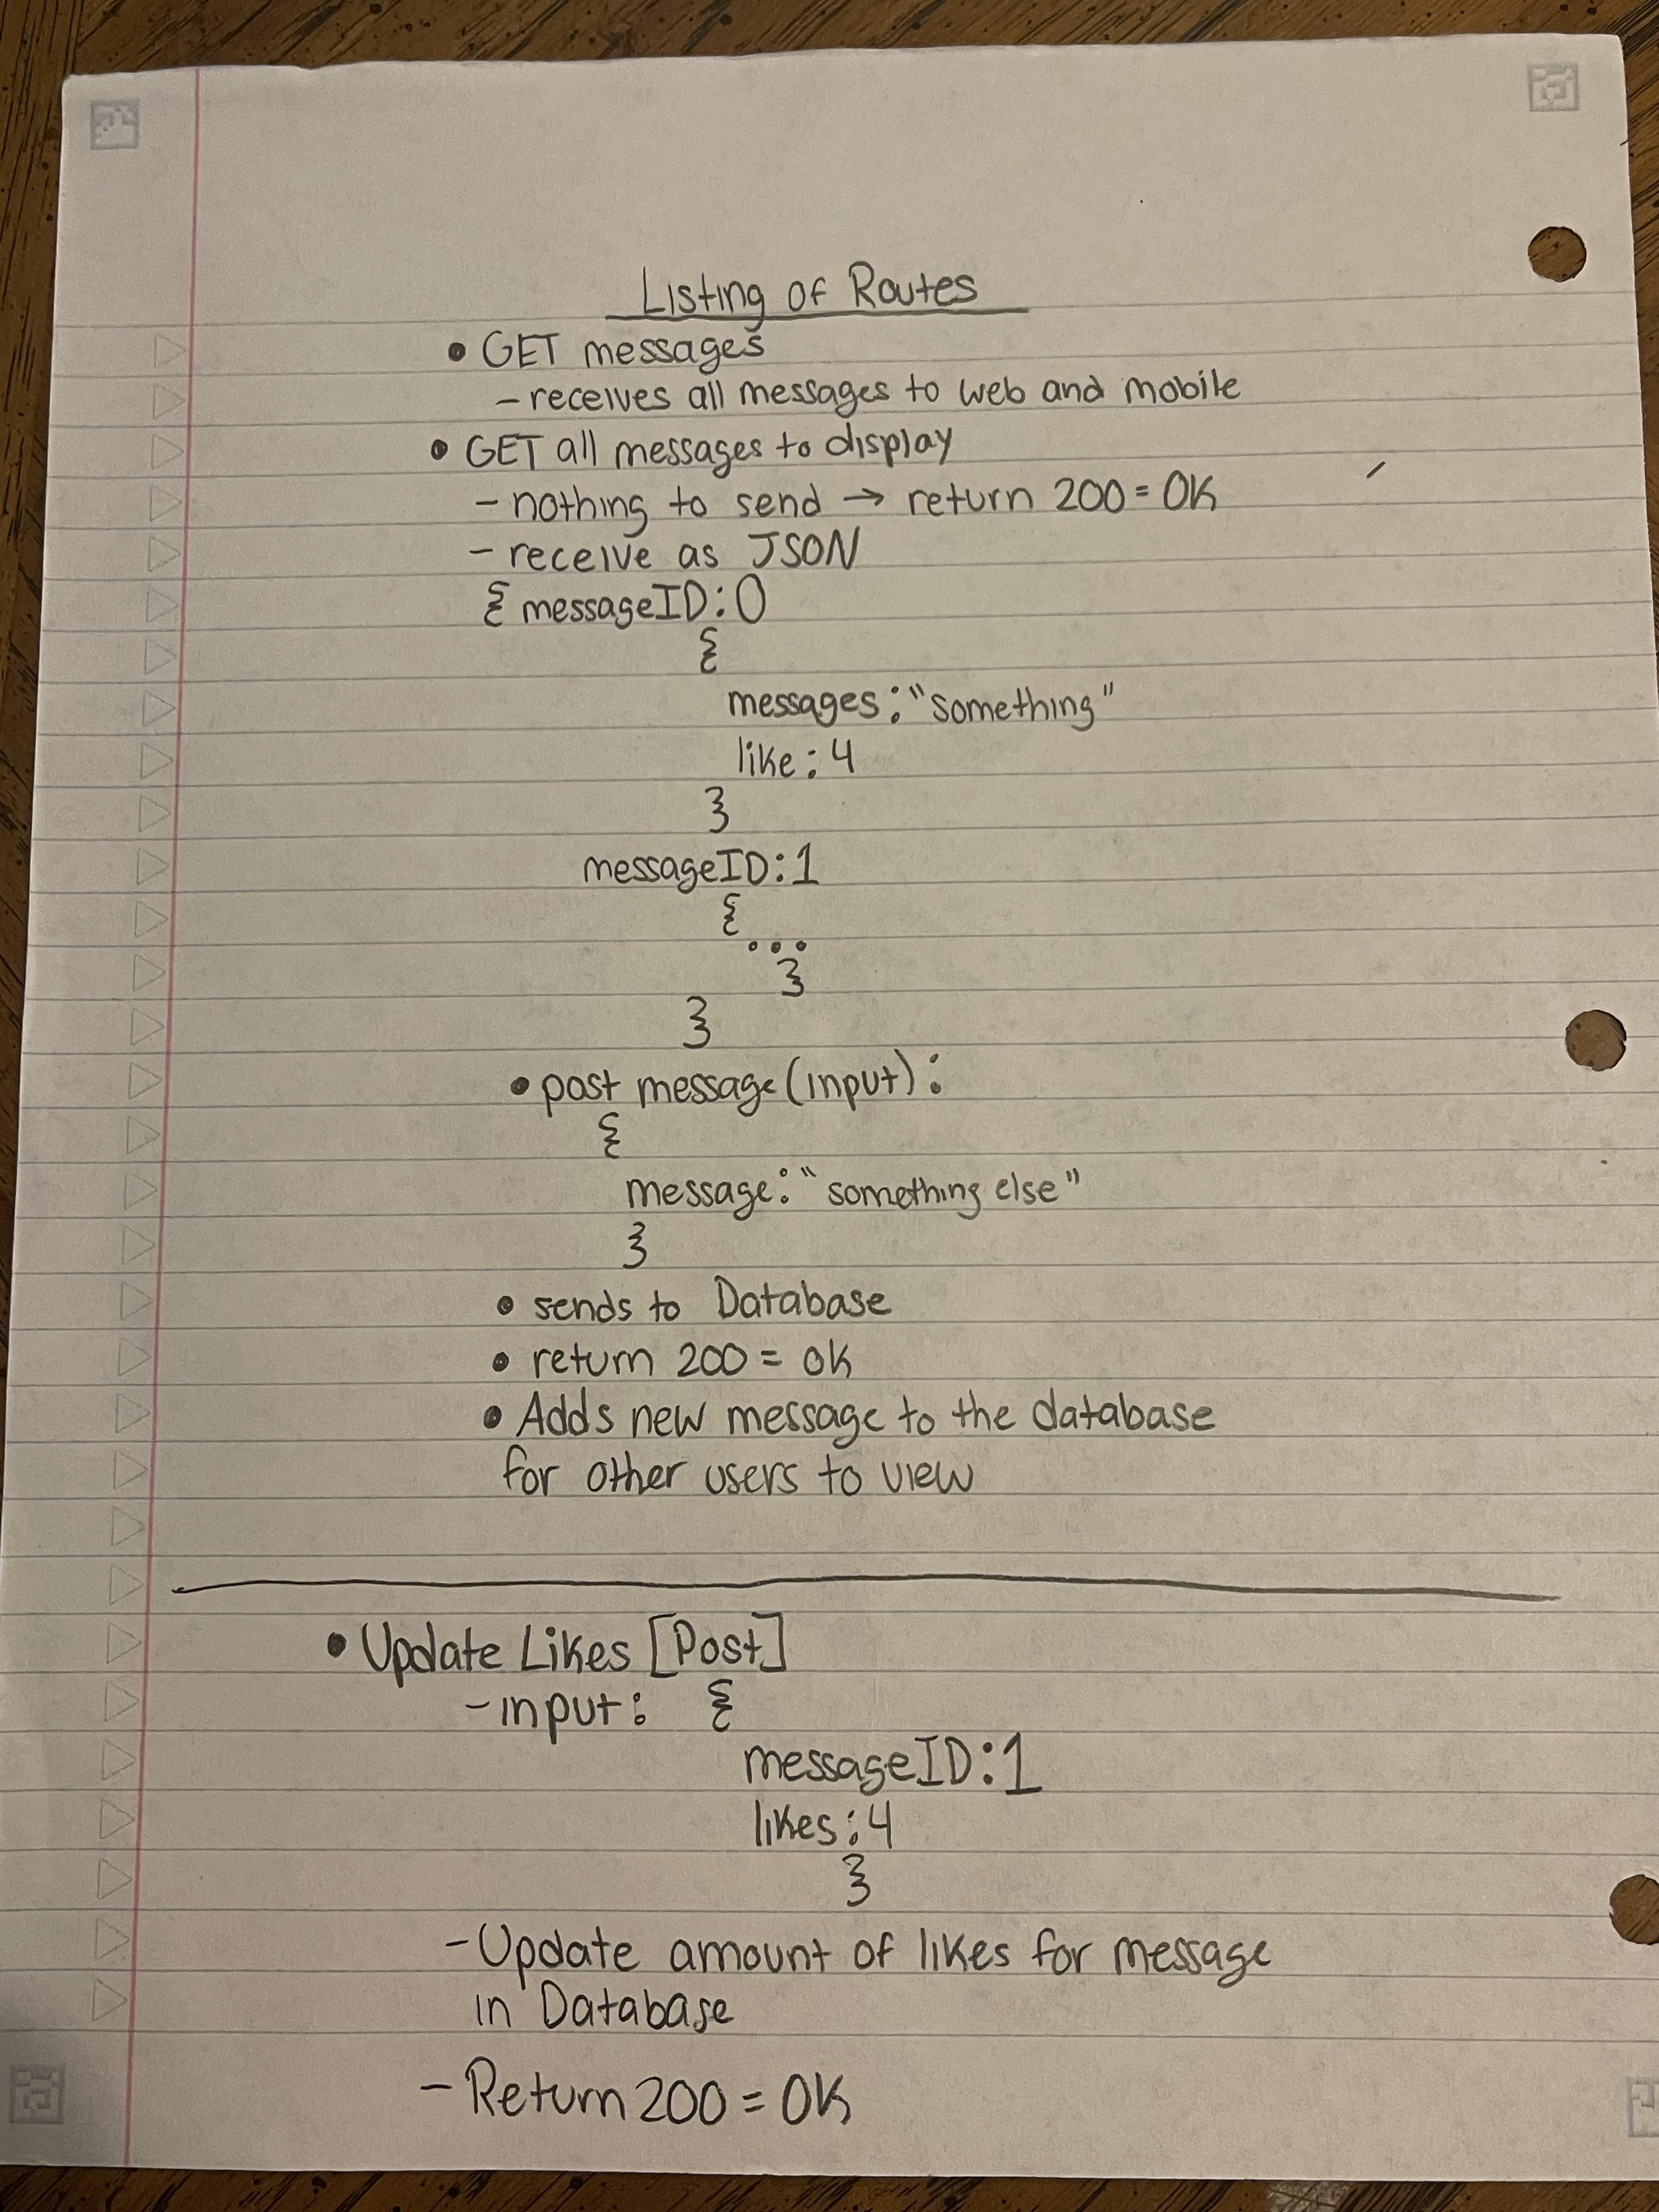 Listing of Routes
• GET messages
- receives all messages to web and mobile
• GET all messages to display
- nothing to send → return 200 = OK
- receive as JSON
{ messageID: 0
{
messages: "something"
like: 4
}
messageID: 1
{
...
}
}
• post message (input):
{
message: "something else"
}
• sends to Database
• return 200 = OK
• Adds new message to the database
for other users to view
• Update Likes [Post]
- input: {
messageID: 1
likes: 4
}
- Update amount of likes for message
in Database
- Return 200 = OK